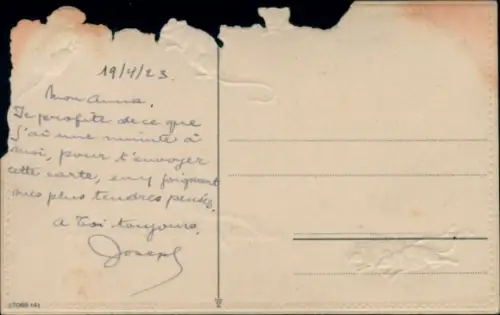 19/4/23.
Mon Anna.
Je profite de ce que
j'ai une minute à
moi, pour t'envoyer
cette carte, en y joignant
mes plus tendres pensées.
A toi toujours.
Joseph